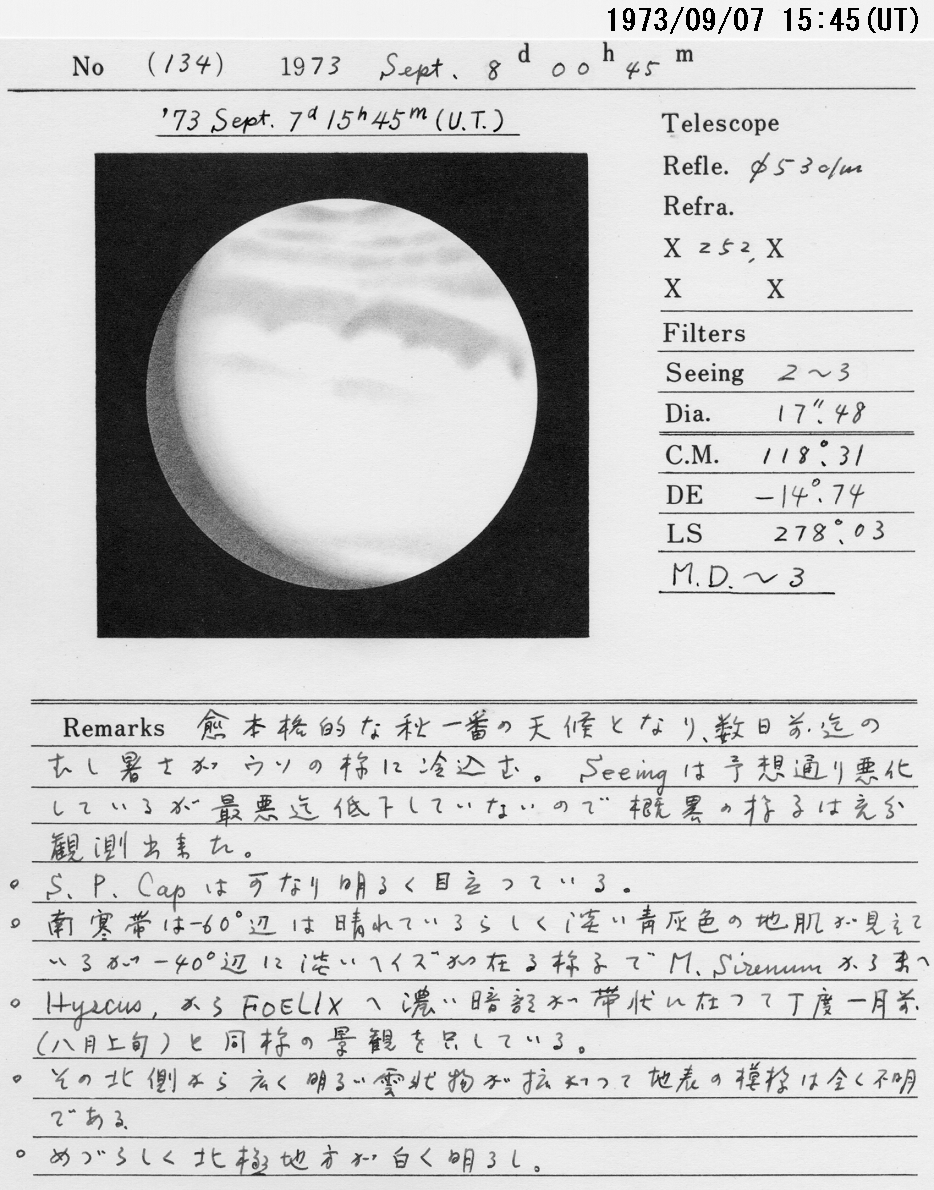 1973/09/07 15:45(UT)
No (134) 1973 Sept. 8 d 00 h 45 m
'73 Sept. 7d 15h 45m (U.T.)
Telescope
Refle. φ53c/m
Refra.
X 252, X
X X
Filters
Seeing 2～3
Dia. 17".48
C.M. 118°.31
DE -14°.74
LS 278°.03
M.D.～3
Remarks 愈本格的な秋一番の天候となり、数日前迄の
むし暑さがウソの様に冷込む。 Seeingは予想通り悪化
しているが最悪迄低下していないので概略の様子は充分
観測出来た。
○ S. P. Capは可なり明るく目立っている。
○ 南寒帯は-60°辺は晴れているらしく淡い青灰色の地肌が見えて
いるが-40°辺に淡いヘイズが在る様子でM. Sirenumから東へ
○ Hyscus, からFOELIXへ濃い暗部が帯状に在って丁度一月前
(八月上旬)と同様の景観を呈している。
○ その北側から広く明るい雲状物が拡がって地表の模様は全く不明
である
○ めづらしく北極地方が白く明るし。